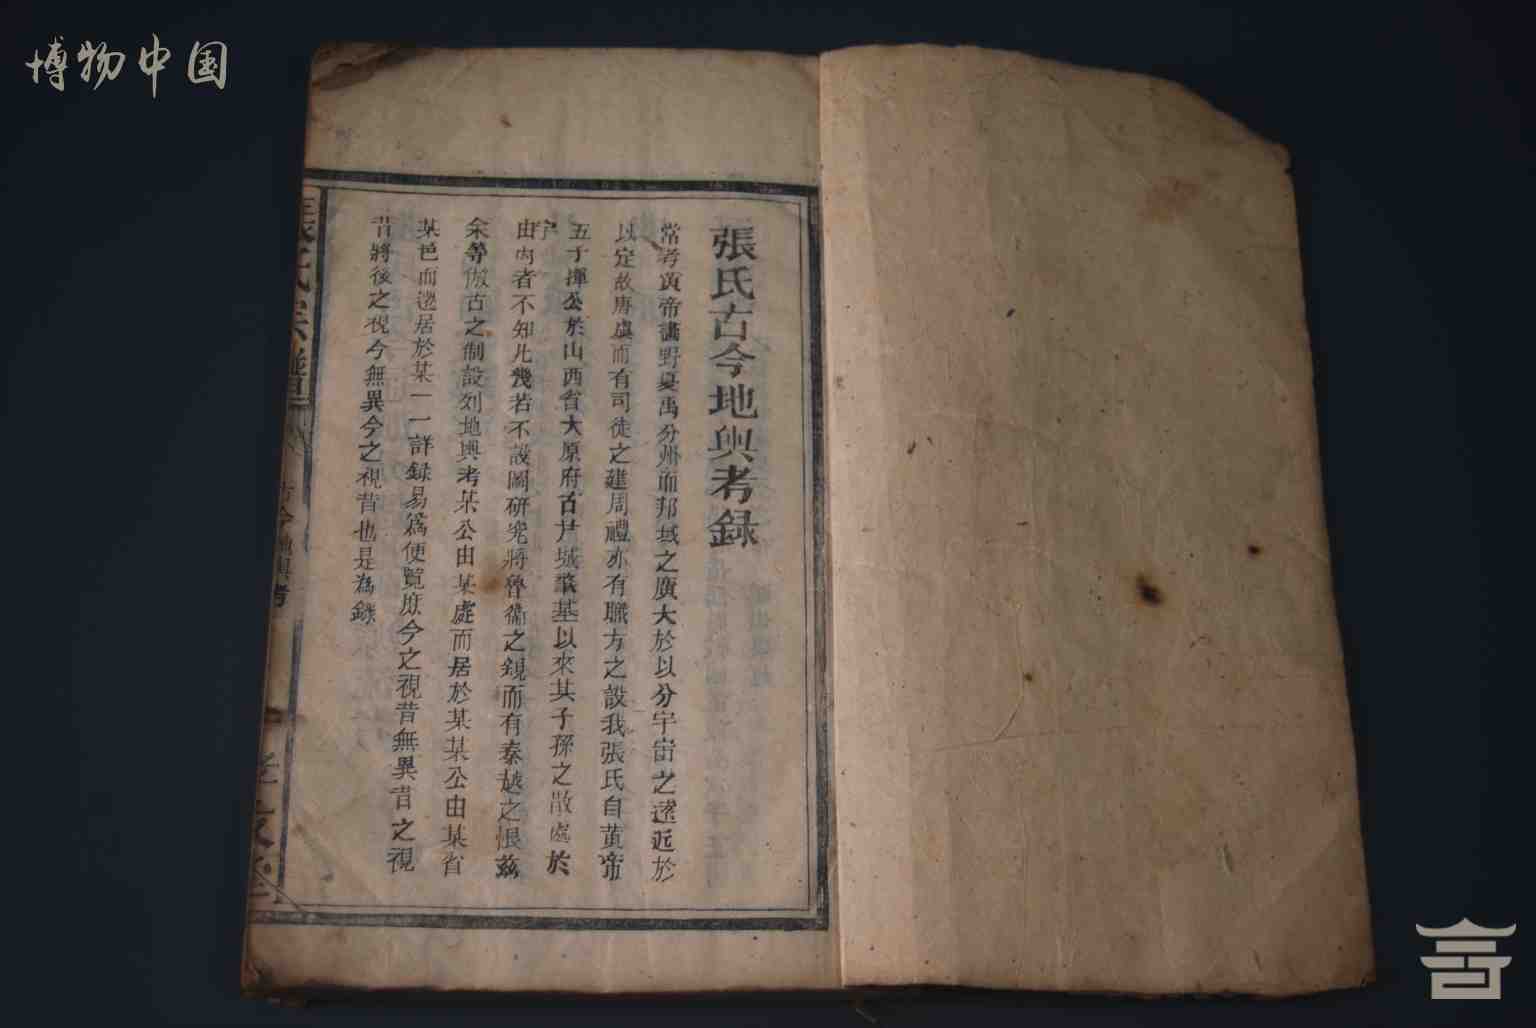 博物中国
張氏古今地輿考録
常考黄帝畵野夏禹分州而邦域之廣大於以分宇宙之遼近於
以定故唐虞而有司徒之建周禮亦有職方之設我張氏自黄帝
五子揮公於山西省大原府古尸城肇基以來其子孫之散處於
宇
由内者不知凡幾若不設圖研究將魯衞之親而有秦越之恨茲
余等倣古之制設列地輿考某公由某處而居於某某公由某省
某邑而遷居於某一一詳録易爲便覽庶今之視昔無異昔之視
昔將後之視今無異今之視昔也是為録
張氏宗譜
古今地輿考